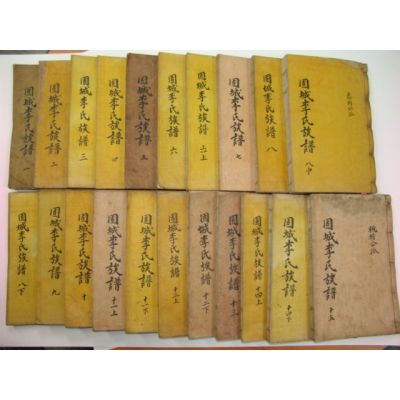 固城李氏族譜 一
固城李氏族譜 二
固城李氏族譜 三
固城李氏族譜 四
固城李氏族譜 五
固城李氏族譜 六
固城李氏族譜 六上
固城李氏族譜 七
固城李氏族譜 八
固城李氏族譜 八中
固城李氏族譜 八下
固城李氏族譜 九
固城李氏族譜 十
固城李氏族譜 十一上
固城李氏族譜 十一下
固城李氏族譜 十二上
固城李氏族譜 十二下
固城李氏族譜 十三
固城李氏族譜 十四上
固城李氏族譜 十四下
桃村公派
固城李氏族譜 十五